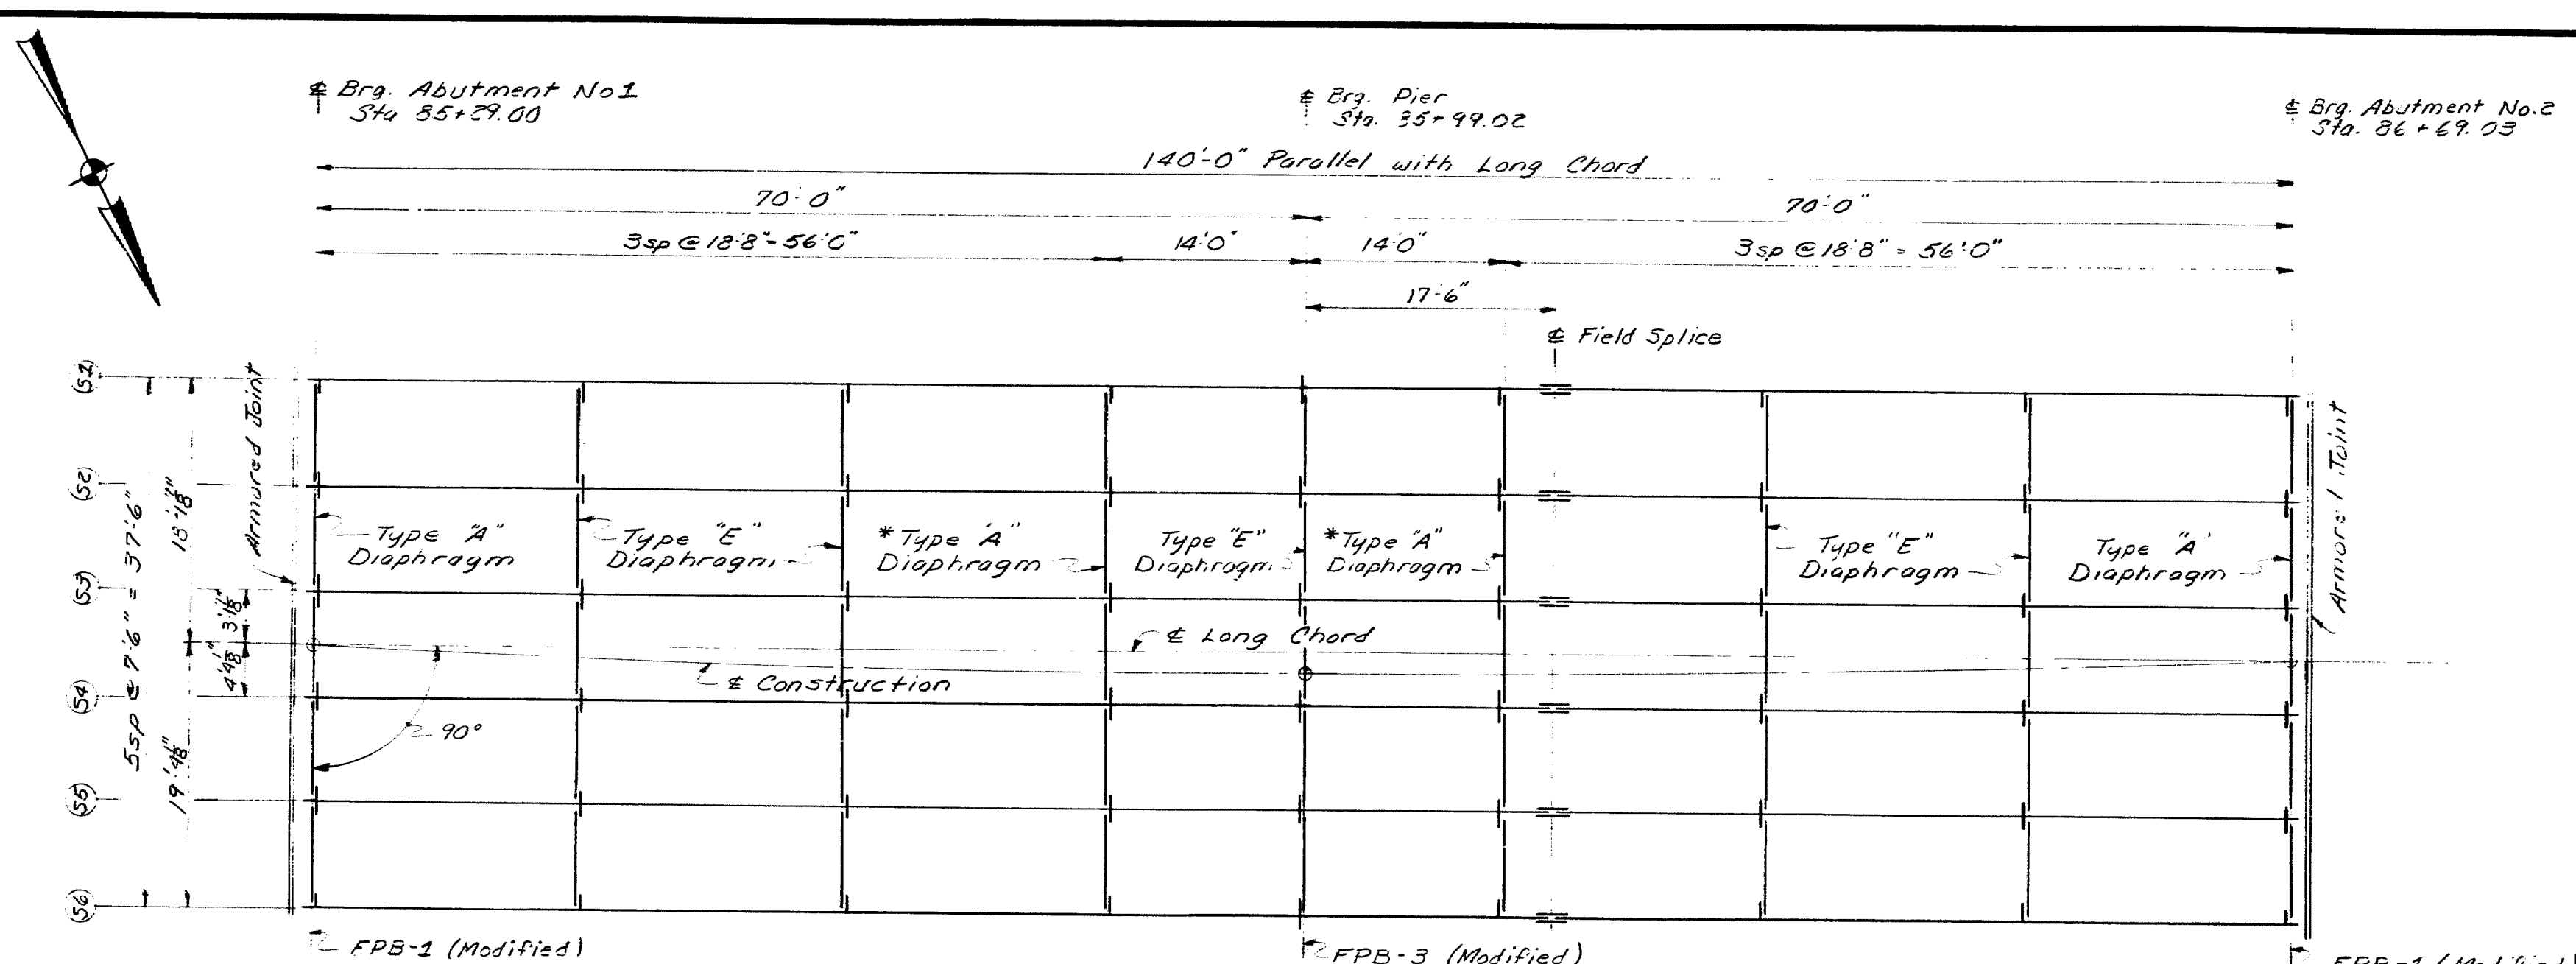 ℄ Brg. Abutment No 1
Sta 85+29.00
℄ Brg. Pier
Sta. 85+99.02
℄ Brg. Abutment No. 2
Sta. 86+69.03
140'-0" Parallel with Long Chord
70'-0"
70'-0"
3 sp @ 18'8" = 56'0"
14'0"
14'0"
3 sp @ 18'8" = 56'-0"
17'-6"
℄ Field Splice
S1
S2
S3
S4
S5
S6
5 sp @ 7'6" = 37'-6"
18'-1⅞"
19'-4⅛"
3'-1⅞"
4'-4⅛"
Armored Joint
Type "A"
Diaphragm
Type "E"
Diaphragm
*Type "A"
Diaphragm
Type "E"
Diaphragm
*Type "A"
Diaphragm
Type "E"
Diaphragm
Type "A"
Diaphragm
Armored Joint
℄ Long Chord
℄ Construction
90°
FPB-1 (Modified)
FPB-3 (Modified)
FPB-1 (Modified)